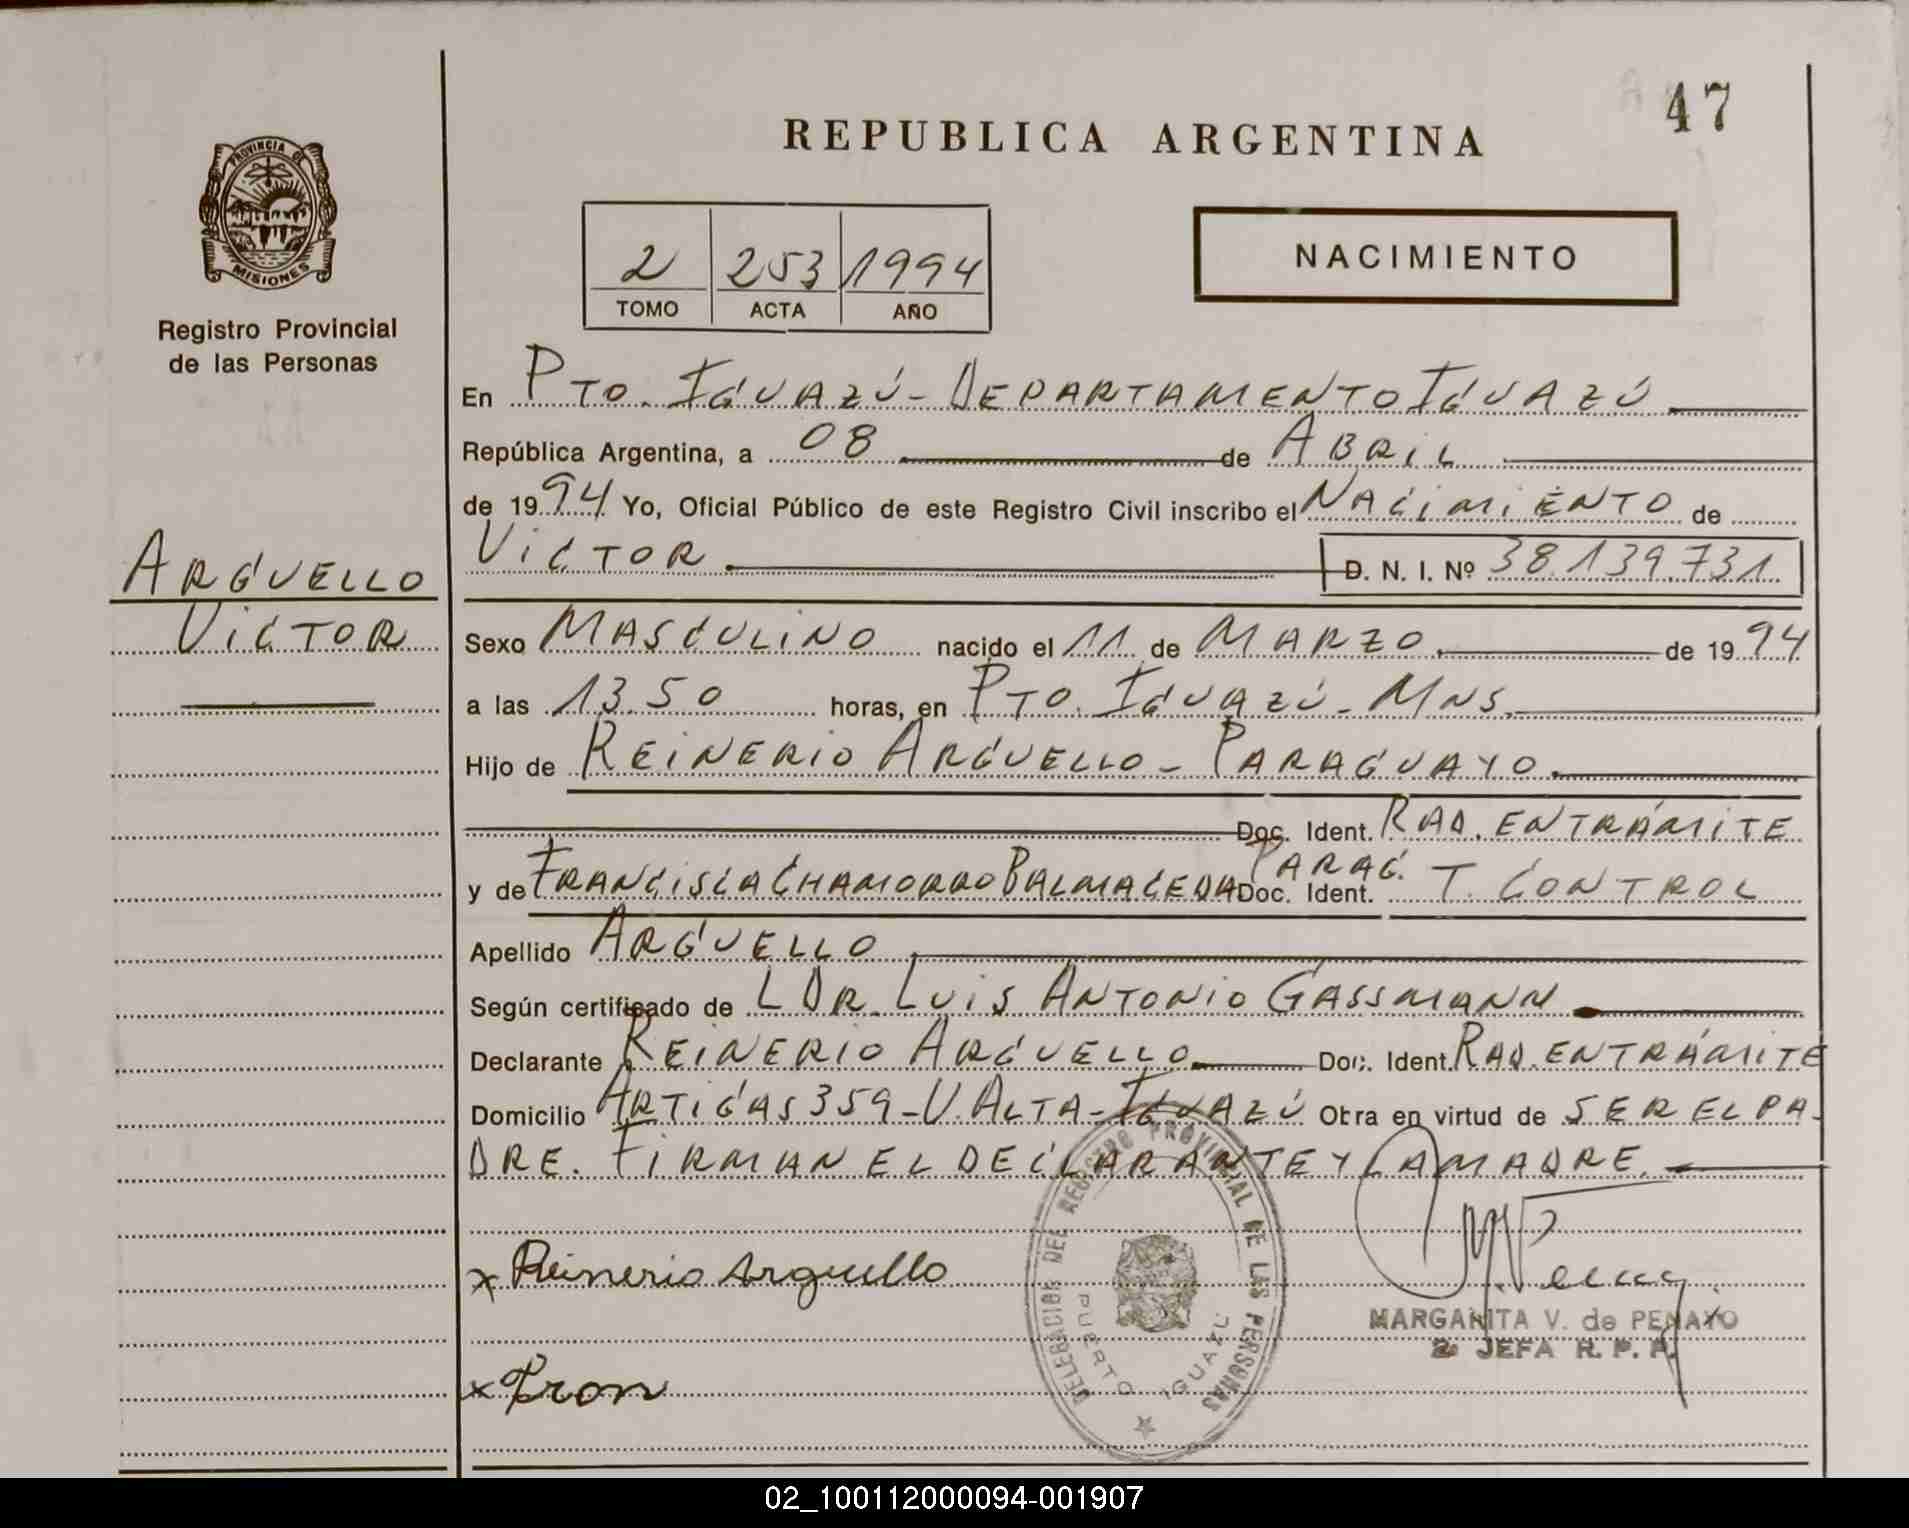 47
REPUBLICA ARGENTINA
PROVINCIA DE
MISIONES
Registro Provincial
de las Personas
2 253 1994
TOMO ACTA AÑO
NACIMIENTO
En PTO. IGUAZÚ - DEPARTAMENTO IGUAZÚ
República Argentina, a 08 de ABRIL
de 1994 Yo, Oficial Público de este Registro Civil inscribo el NACIMIENTO de
VICTOR D. N. I. Nº 38.139.731
ARGUELLO
VICTOR
Sexo MASCULINO nacido el 11 de MARZO de 1994
a las 13.50 horas, en PTO. IGUAZÚ - MNS.
Hijo de REINERIO ARGUELLO - PARAGUAYO
Doc. Ident. RAD. EN TRÁMITE
y de FRANCISCA CHAMORRO BALMACEDA PARAG. Doc. Ident. T. CONTROL
Apellido ARGUELLO
Según certificado de L DR. LUIS ANTONIO GASSMANN
Declarante REINERIO ARGUELLO Doc. Ident. RAD. EN TRÁMITE
Domicilio ARTIGAS 359 - V. ALTA - IGUAZÚ Obra en virtud de SER EL PA-
DRE. FIRMAN EL DECLARANTE Y LA MADRE.
x Reinerio Arguello
MARGARITA V. de PENAYO
2º JEFA R. P. P.
x
DELEGACION DEL REGISTRO PROVINCIAL DE LAS PERSONAS
PUERTO IGUAZU
02_100112000094-001907